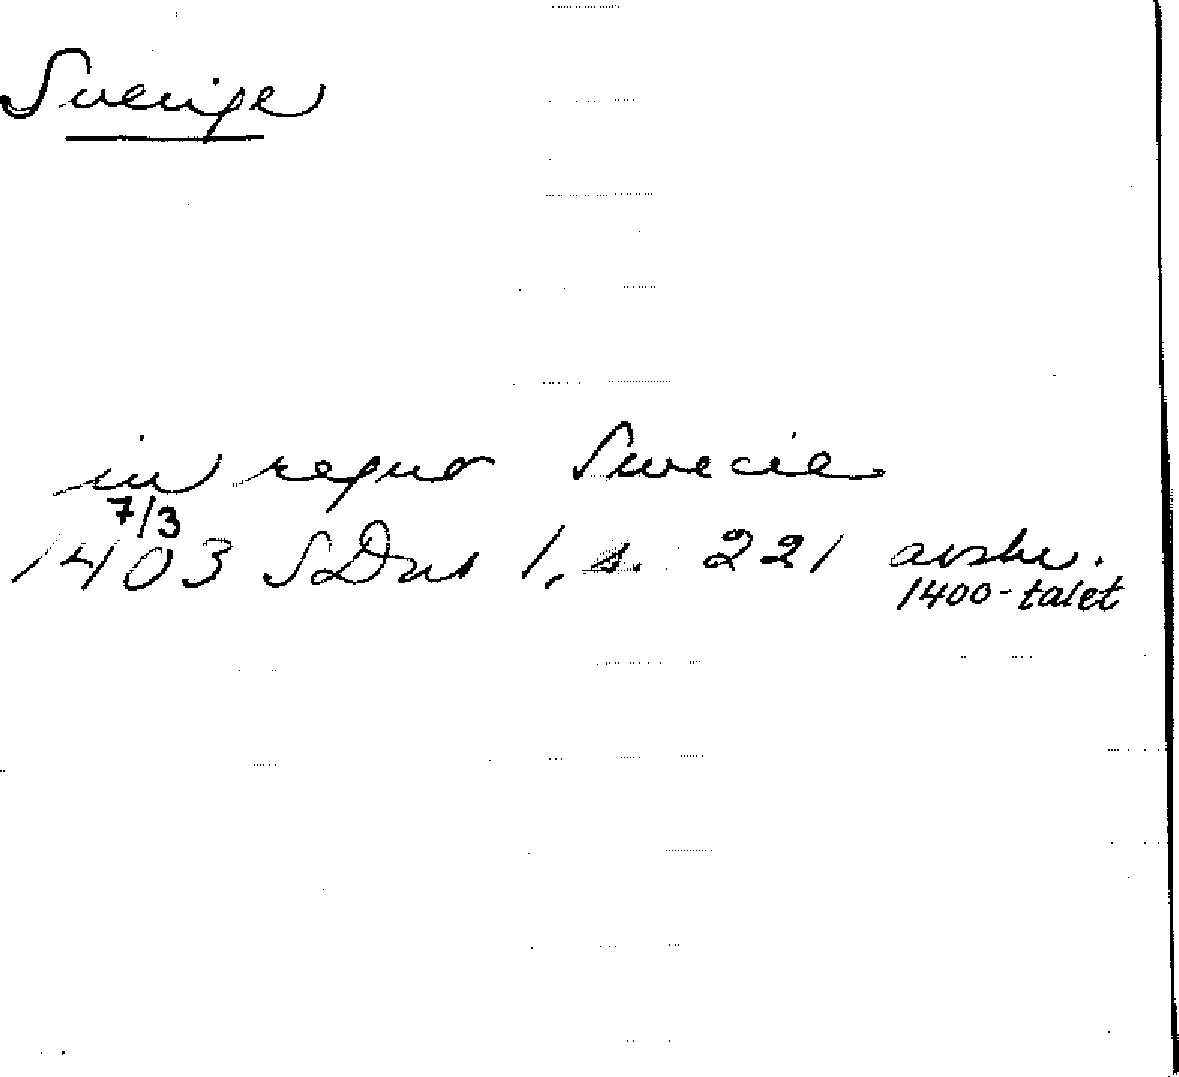 Sverige
in regno Swecie
7/3
1403 SDns 1, s. 221 avskr.
1400-talet